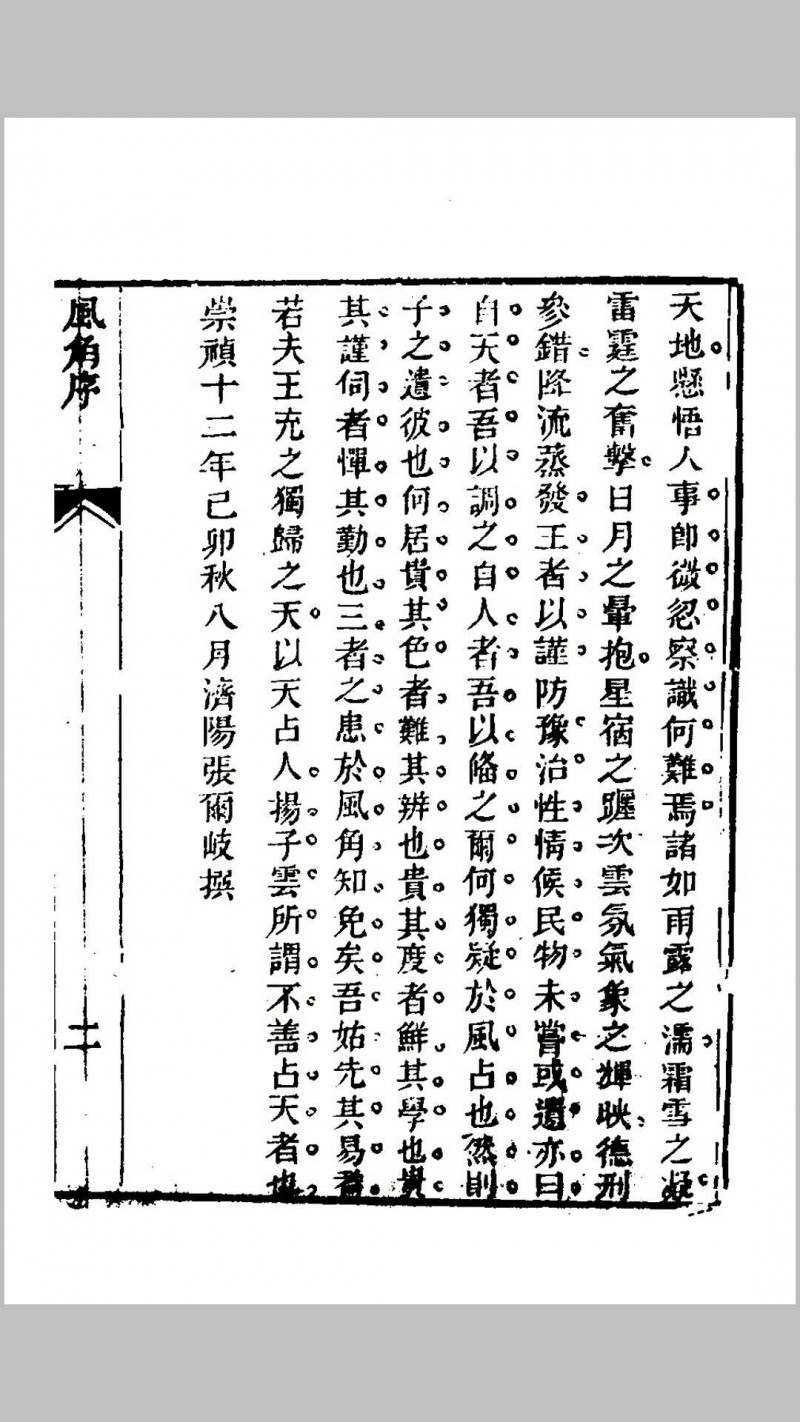 天地懸悟人事卽微忽察識何難焉諸如雨露之濡霜雪之凝
雷霆之奮擊日月之暈抱星宿之躔次雲氛氣象之輝映德刑
參錯降流蒸發王者以謹防豫治性情候民物未嘗或遺亦曰
自天者吾以調之自人者吾以脩之爾何獨疑於風占也然則
子之遺彼也何居貴其色者難其辨也貴其度者鮮其學也貴
其謹伺者憚其勤也三者之患於風角知免矣吾姑先其易者
若夫王充之獨歸之天以天占人揚子雲所謂不善占天者也
崇禎十二年己卯秋八月濟陽張爾岐撰
風角序
二